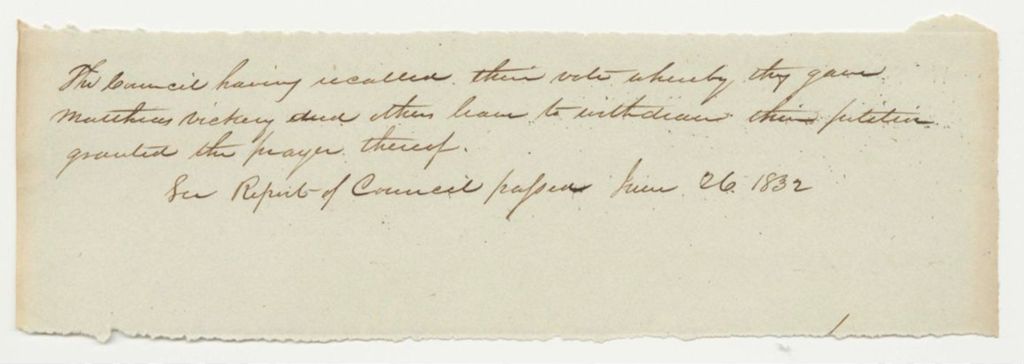 The Council having recalled their vote whereby they gave
Matthias Vickery and others leave to withdraw their petition
granted the prayer thereof.
See Report of Council passed June 26 1832